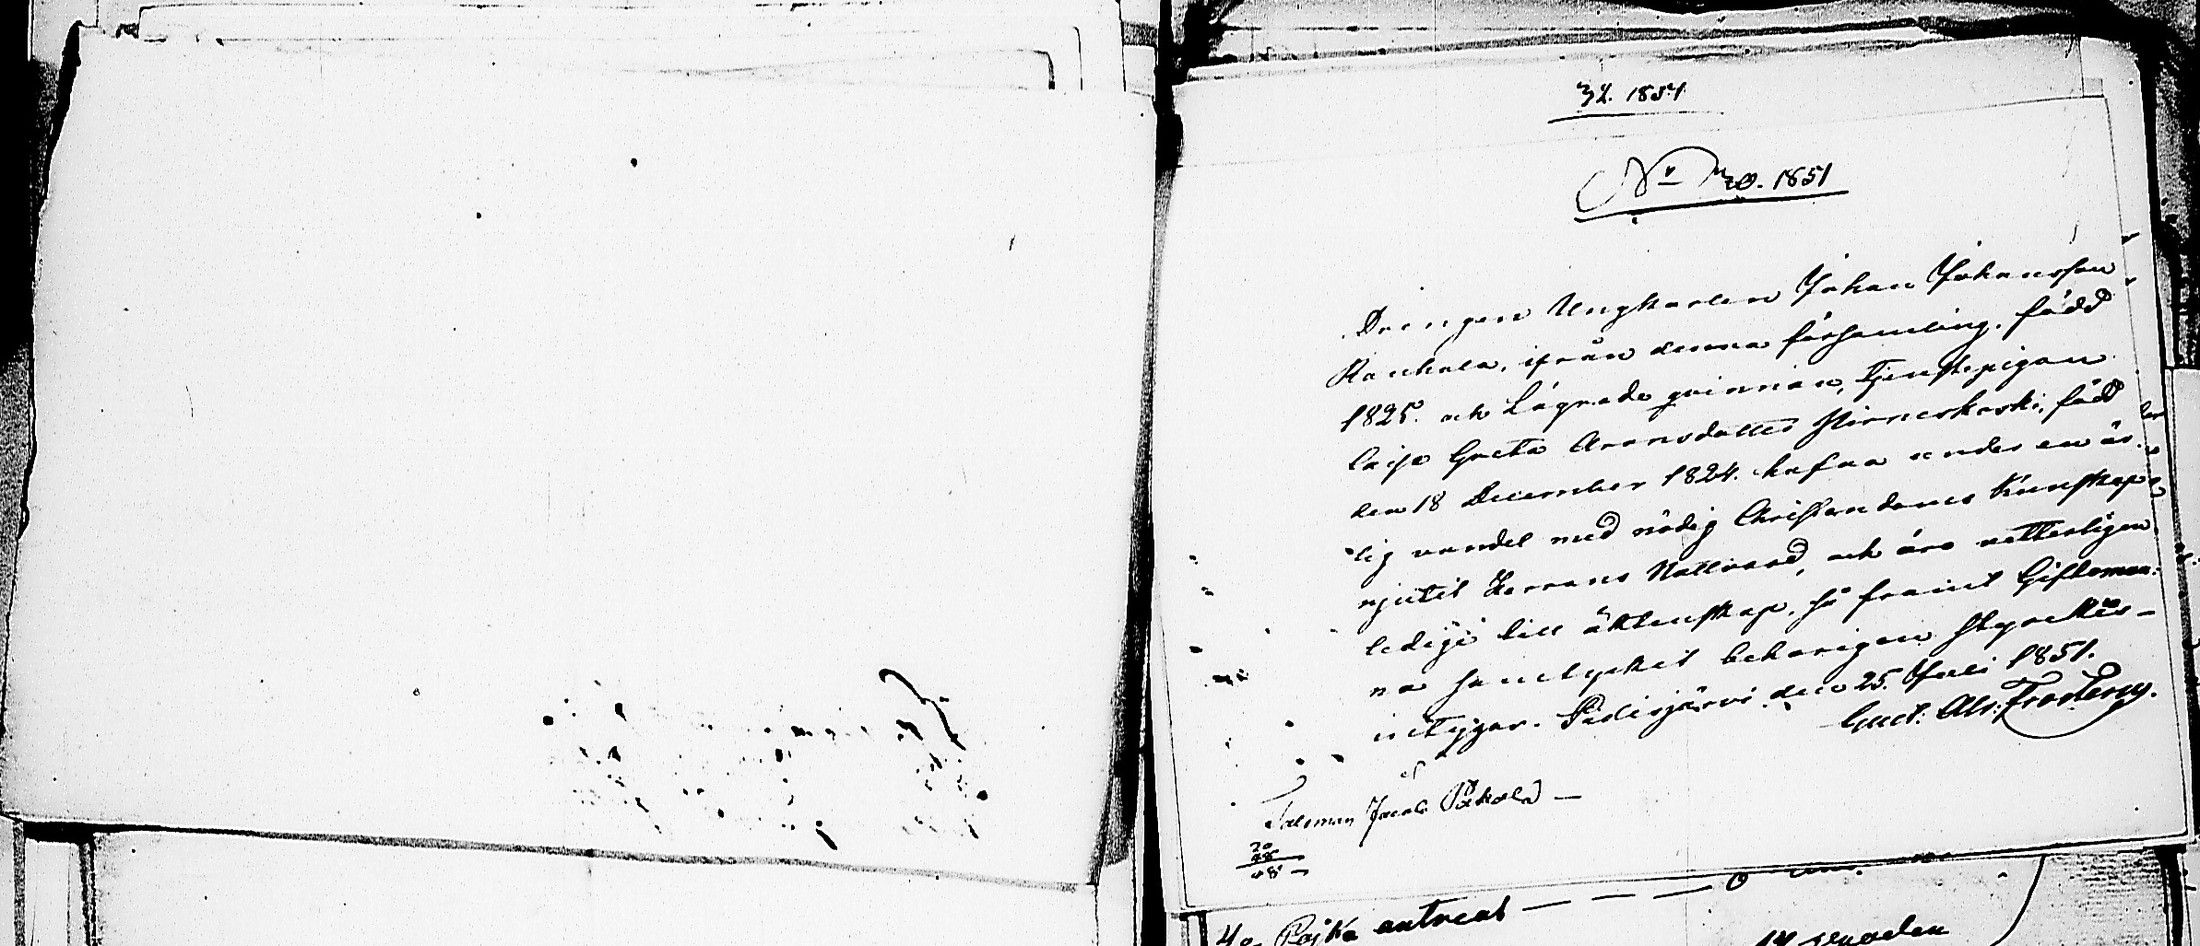 32. 1854
No 20. 1851
Drengen Ungkarlen Johan Johansson
Kankala, ifrån denna församling, född
1825. och Lägrade qvinnan, Tjenstepigan
Caijsa Greta Aronsdotter Hirneskoski, född
den 18 December 1824. hafva under en är-
lig vandel med nödig Christendoms Kunskap
njutit Herrans Nattvard, och äro vetterligen
ledige till äktenskap, så framt Giftoman-
na samtycket behörigen styrkes –
intygar. Pidisjärvi den 25. Juli 1851.
Gust: Alb: Frosterus.
Taleman Jacob Pökölä –
20
48
48 –
Pojka antecat